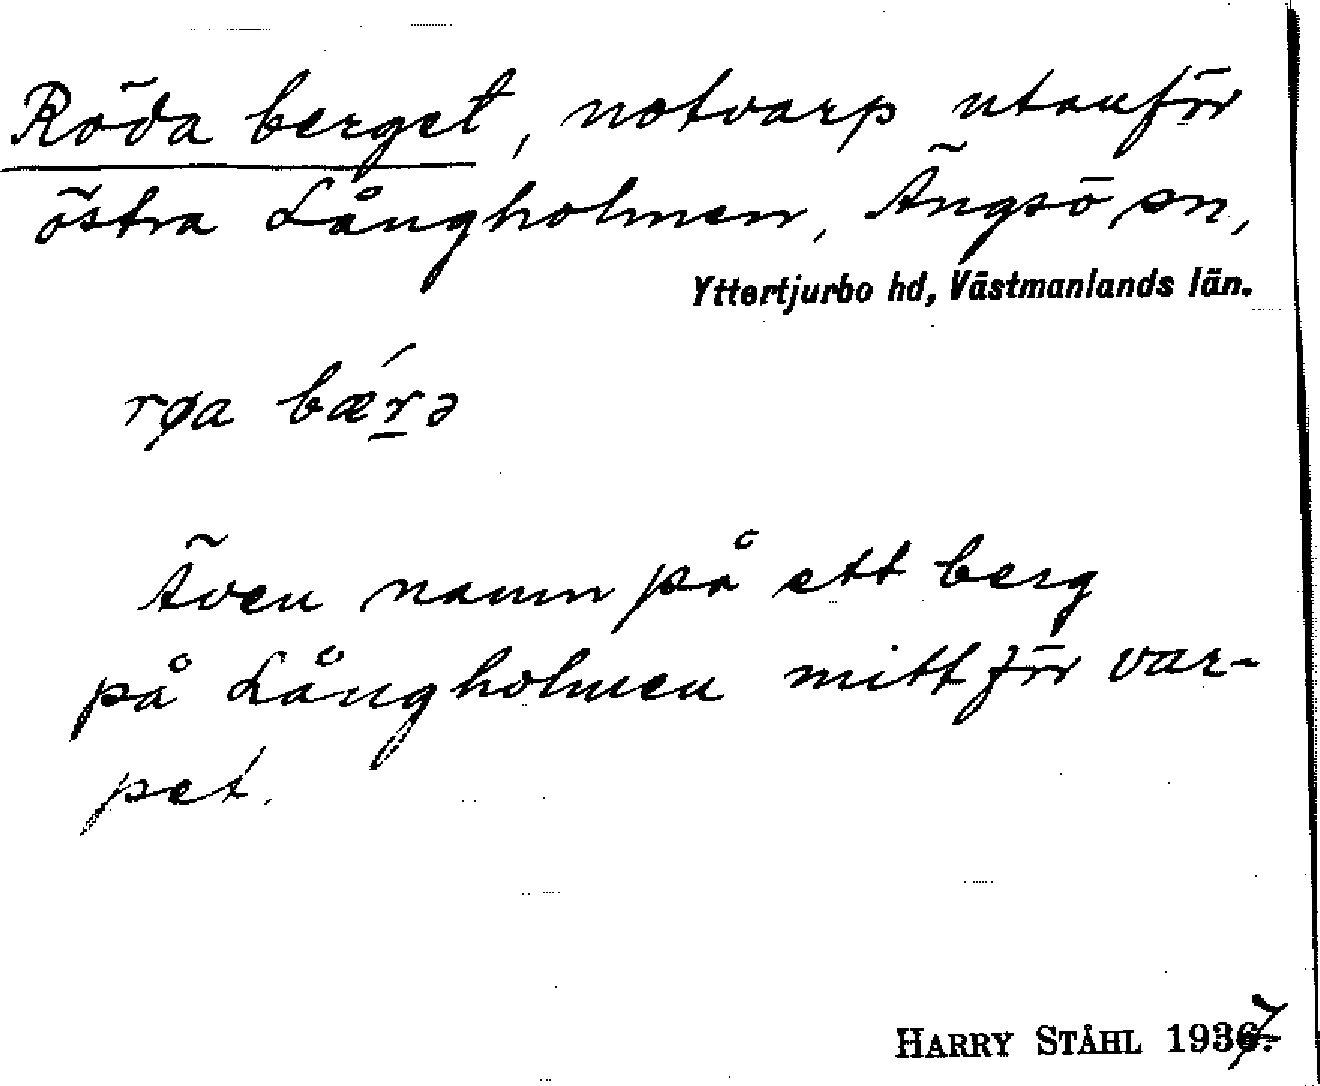 Röda berget, notvarp utanför
östra Långholmen, Ängsö sn,
Yttertjurbo hd, Västmanlands län.
røa bǽrə
Även namn på ett berg
på Långholmen mitt för var-
pet.
HARRY STÅHL 1937